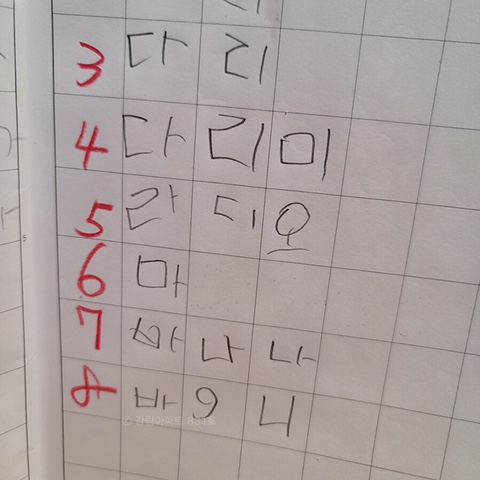 3 다리
4 다리미
5 라디오
6 마
7 바나나
8 바구니
© 감럭아파트 831호